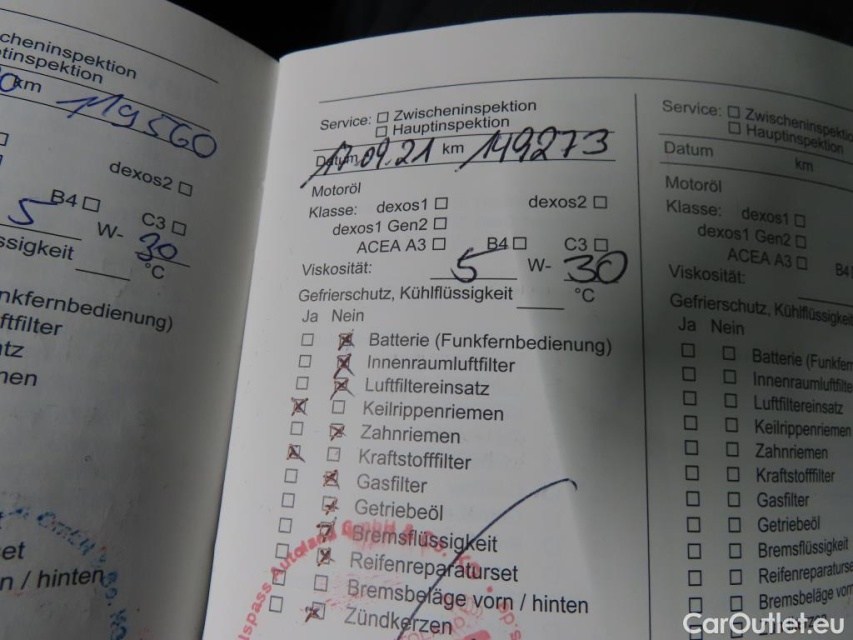 cheninspektion
tinspektion
km 119560
dexos2
B4
5 W- 30 C3
ssigkeit °C
nkfernbedienung)
ftfilter
tz
nen
et
n / hinten
Service: Zwischeninspektion
Hauptinspektion
Datum 17.09.21 km 149273
Motoröl
Klasse: dexos1 dexos2
dexos1 Gen2
ACEA A3 B4 C3
Viskosität: 5 W- 30
Gefrierschutz, Kühlflüssigkeit °C
Ja Nein
Batterie (Funkfernbedienung)
Innenraumluftfilter
Luftfiltereinsatz
Keilrippenriemen
Zahnriemen
Kraftstofffilter
Gasfilter
Getriebeöl
Bremsflüssigkeit
Reifenreparaturset
Bremsbeläge vorn / hinten
Zündkerzen
spass Autoland GmbH &
Service: Zwischeninspektio
Hauptinspektion
Datum km
Motoröl
Klasse: dexos1
dexos1 Gen2
ACEA A3 B4
Viskosität:
Gefrierschutz, Kühlflüssigkeit
Ja Nein
Batterie (Funkfern
Innenraumluftfilte
Luftfiltereinsatz
Keilrippenriemen
Zahnriemen
Kraftstofffilter
Gasfilter
Getriebeöl
Bremsflüssigkeit
Reifenreparaturse
Bremsbeläge vorn
CarOutlet.eu